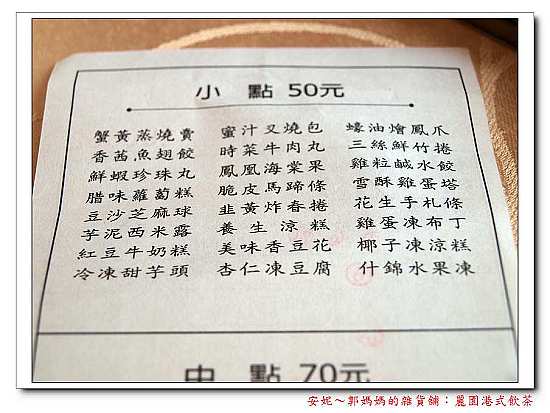 小 點 50元
蟹黃蒸燒賣 蜜汁叉燒包 蠔油燴鳳爪
香茜魚翅餃 時菜牛肉丸 三絲鮮竹捲
鮮蝦珍珠丸 鳳凰海棠果 雞粒鹹水餃
腊味蘿蔔糕 脆皮馬蹄條 雪酥雞蛋塔
豆沙芝麻球 韭黃炸春捲 花生手札條
芋泥西米露 養生涼糕 雞蛋凍布丁
紅豆牛奶糕 美味香豆花 椰子凍涼糕
冷凍甜芋頭 杏仁凍豆腐 什錦水果凍
中 點 70元
安妮～郭媽媽的雜貨鋪：麗園港式飲茶